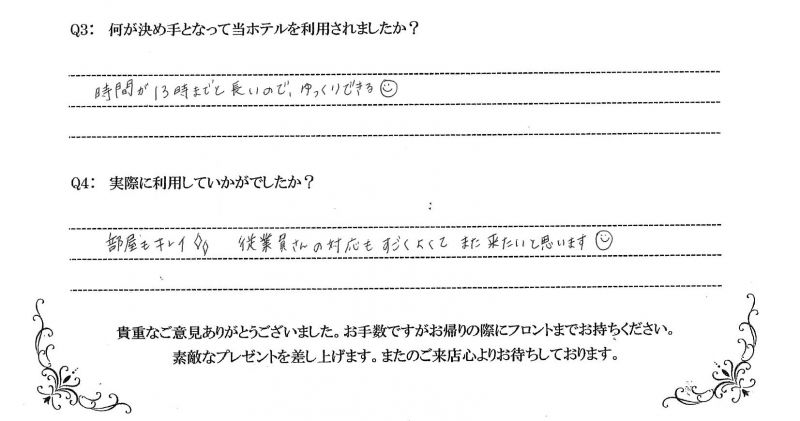 Q3： 何が決め手となって当ホテルを利用されましたか？
時間が13時までと長いので、ゆっくりできる☺
Q4： 実際に利用していかがでしたか？
部屋もキレイ♢♢ 従業員さんの対応もすごくよくて また来たいと思います☺
貴重なご意見ありがとうございました。お手数ですがお帰りの際にフロントまでお持ちください。
素敵なプレゼントを差し上げます。またのご来店心よりお待ちしております。